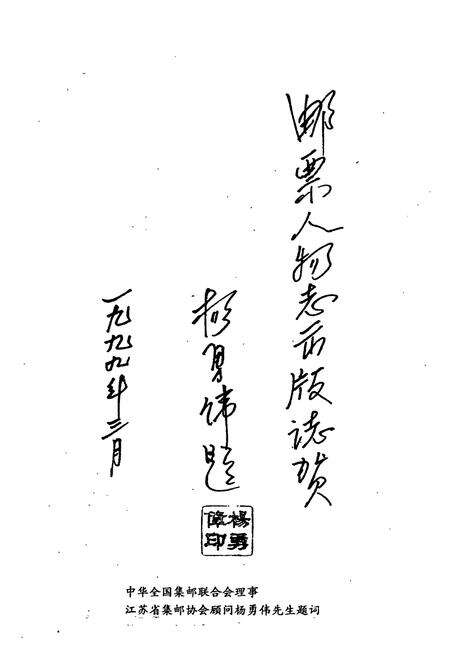 邮票人物志出版志贺
杨勇伟题
一九九九年三月
杨勇
伟印
中华全国集邮联合会理事
江苏省集邮协会顾问杨勇伟先生题词